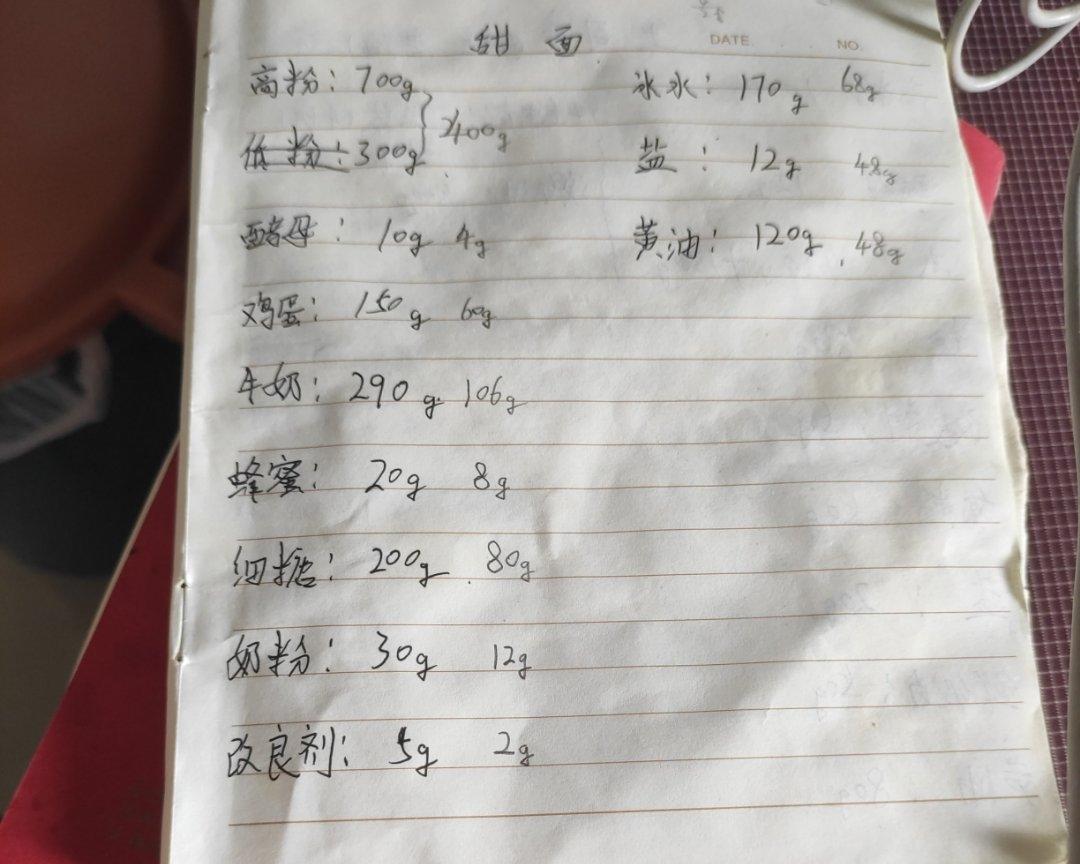 甜面
DATE NO.
高粉：700g
低粉：300g
400g
酵母：10g 4g
鸡蛋：150g 60g
牛奶：290g 106g
蜂蜜：20g 8g
细糖：200g 80g
奶粉：30g 12g
改良剂：5g 2g
冰水：170g 68g
盐：12g 48g
黄油：120g 48g